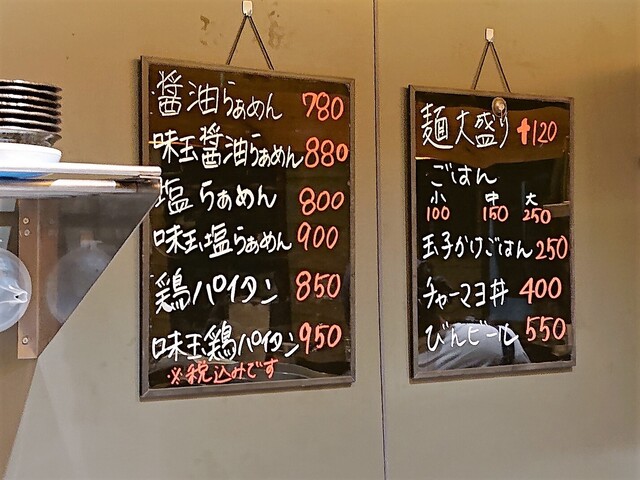 醤油らぁめん 780
味玉醤油らぁめん 880
塩らぁめん 800
味玉塩らぁめん 900
鶏パイタン 850
味玉鶏パイタン 950
※税込みです
麺大盛り +120
ごはん
小 中 大
100 150 250
玉子かけごはん 250
チャーマヨ丼 400
びんビール 550